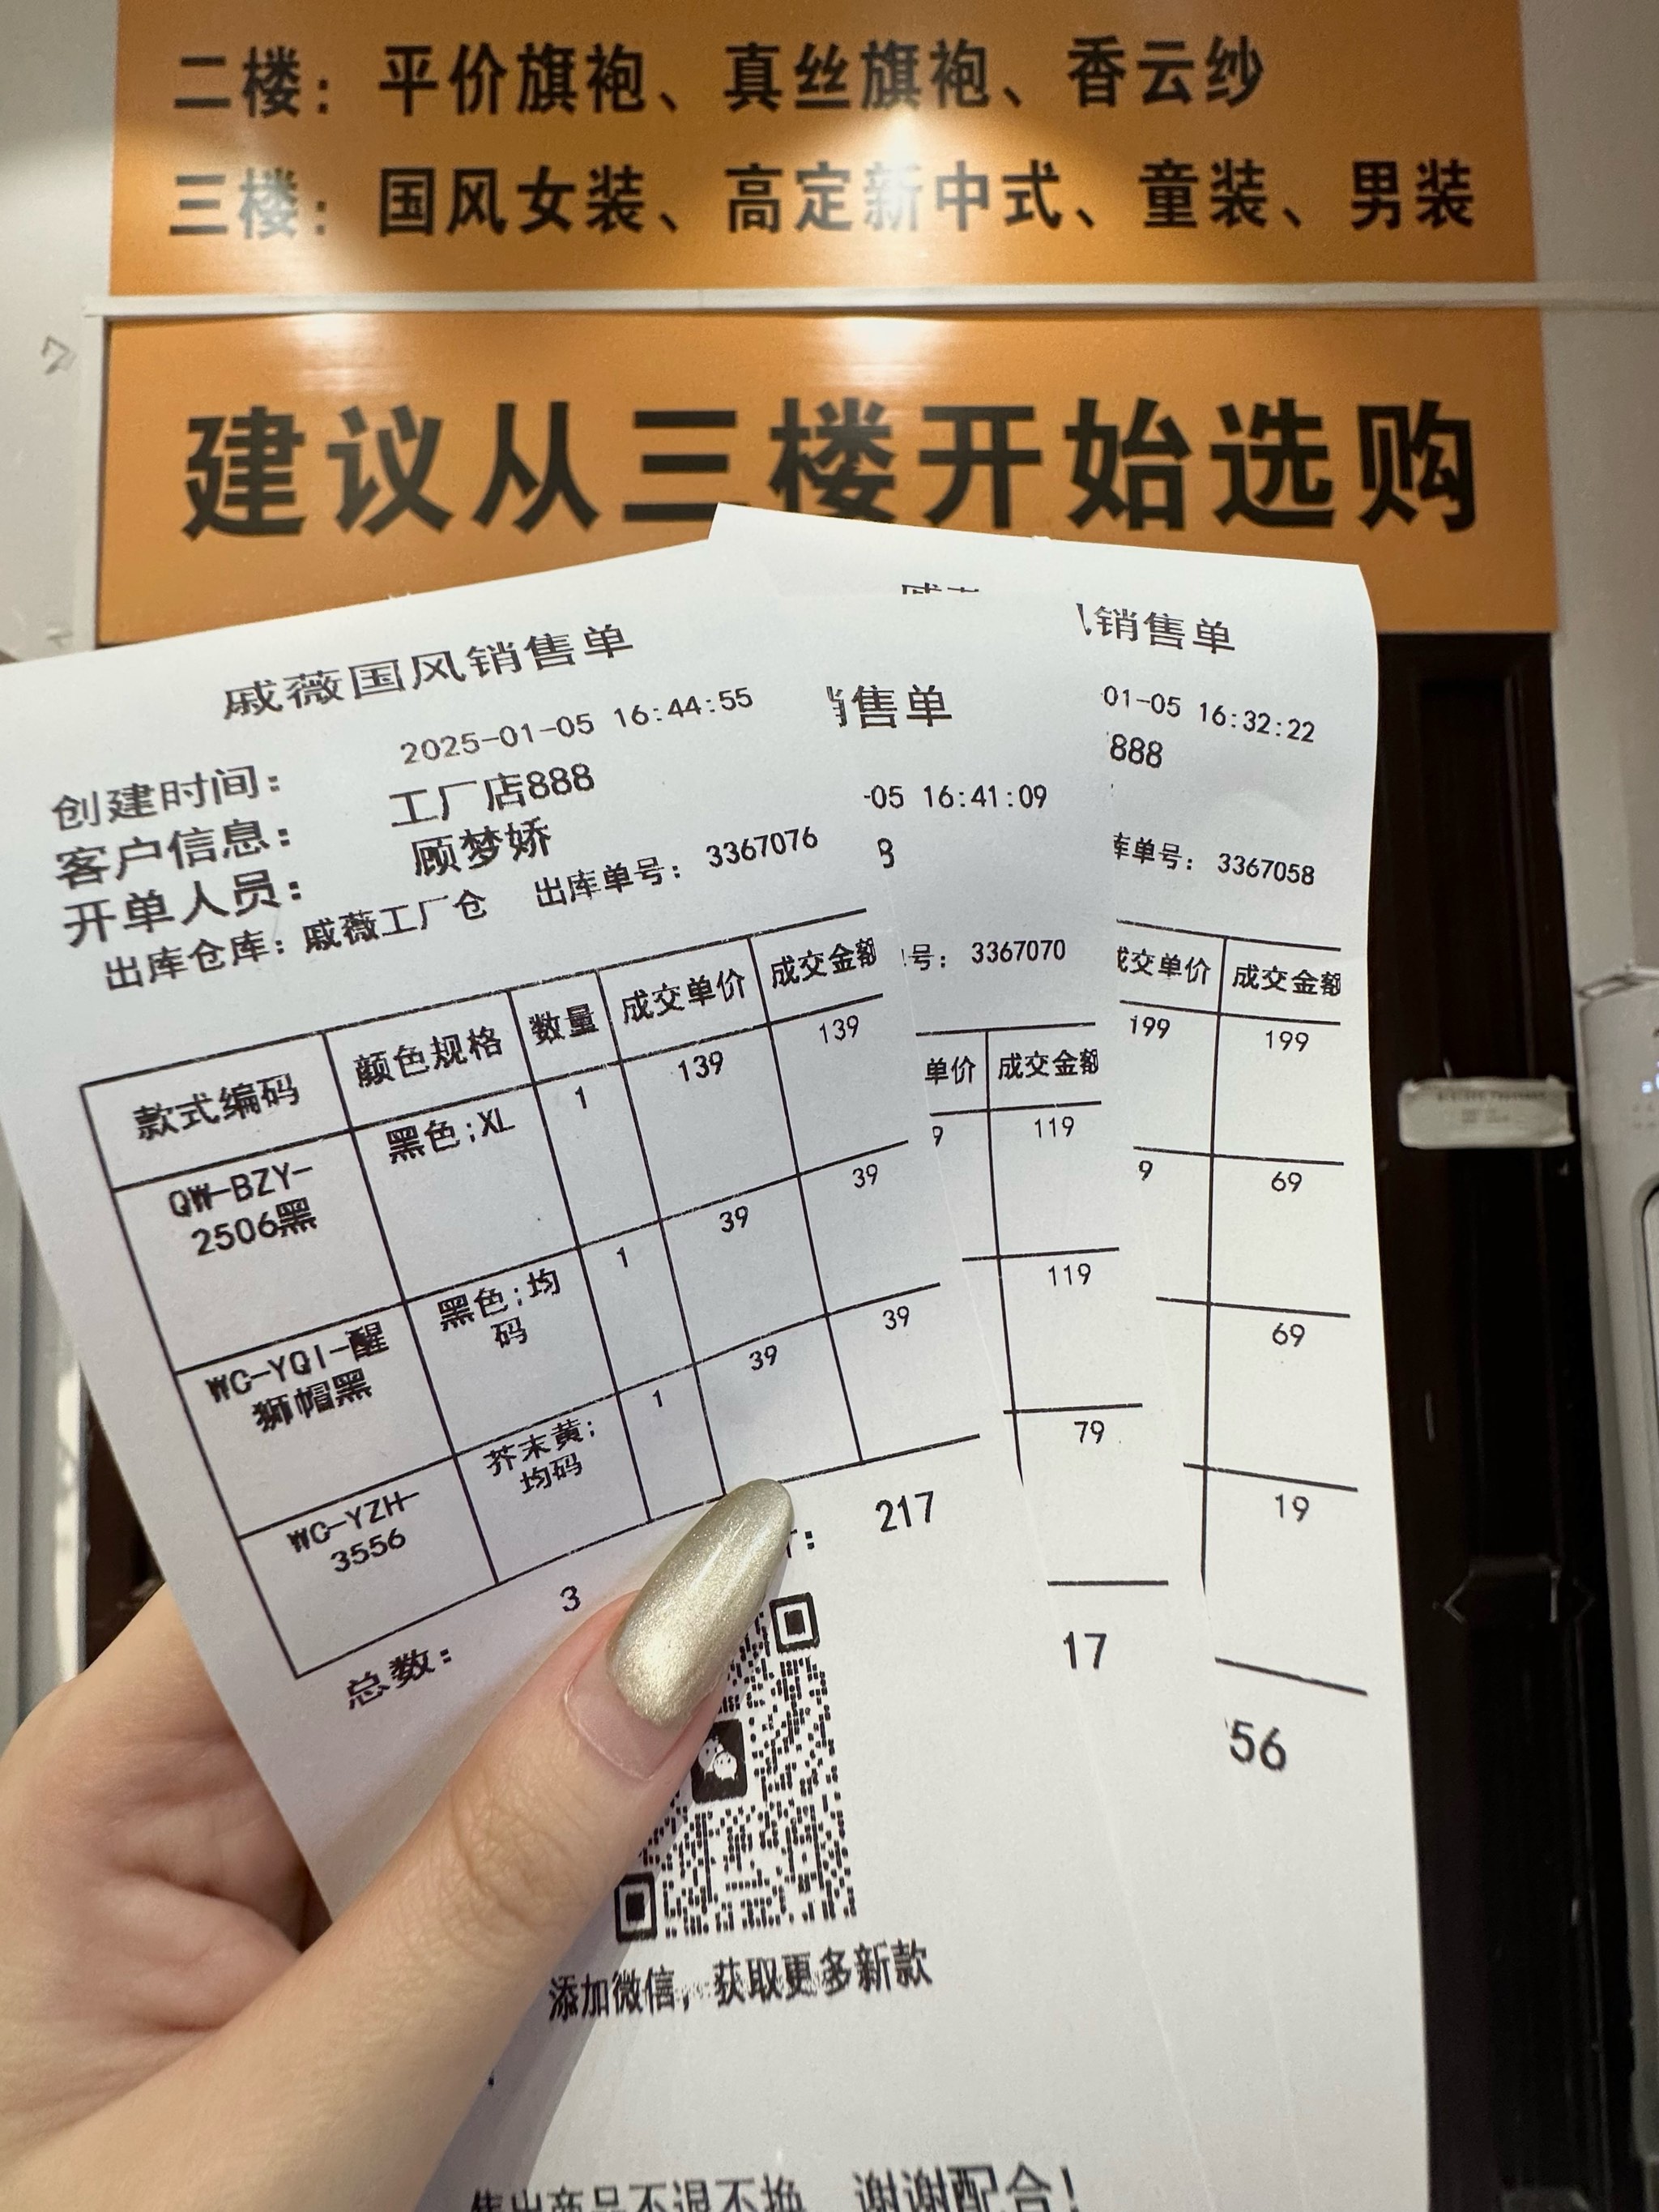 二楼：平价旗袍、真丝旗袍、香云纱
三楼：国风女装、高定新中式、童装、男装
建议从三楼开始选购
戚薇国风销售单
创建时间： 2025-01-05 16:44:55
客户信息： 工厂店888
开单人员： 顾梦娇
出库仓库：戚薇工厂仓 出库单号：3367076
款式编码 颜色规格 数量 成交单价 成交金额
QW-BZY-2506黑 黑色;XL 1 139 139
WC-YQI-醒狮帽黑 黑色;均码 1 39 39
WC-YZH-3556 芥末黄;均码 1 39 39
总数： 3 217
添加微信，获取更多新款
售出商品不退不换 谢谢配合！
售单
-05 16:41:09
号：3367070
单价 成交金额
9 119
119
79
17
销售单
01-05 16:32:22
888
库单号：3367058
成交单价 成交金额
199 199
9 69
69
19
56